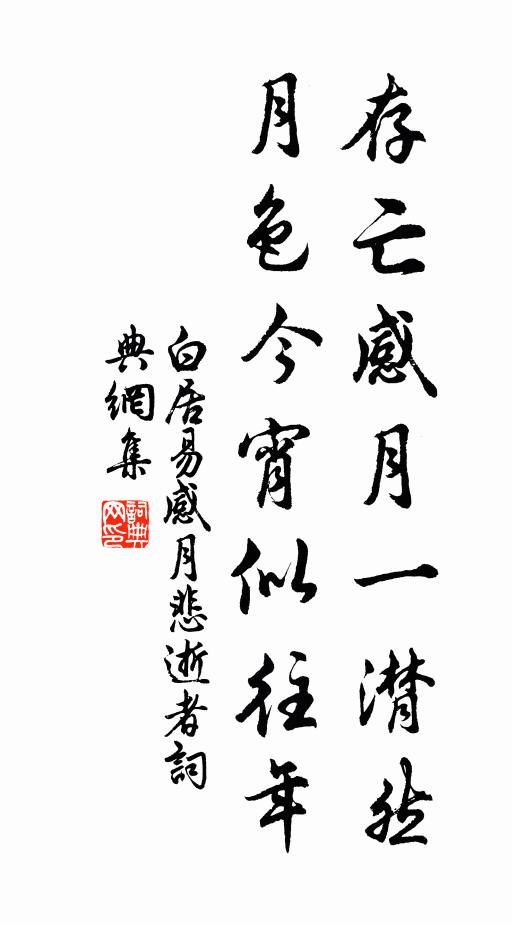 存亡感月一潸然
月色今宵似往年
白居易感月悲逝者詞
典網集
詞典网印